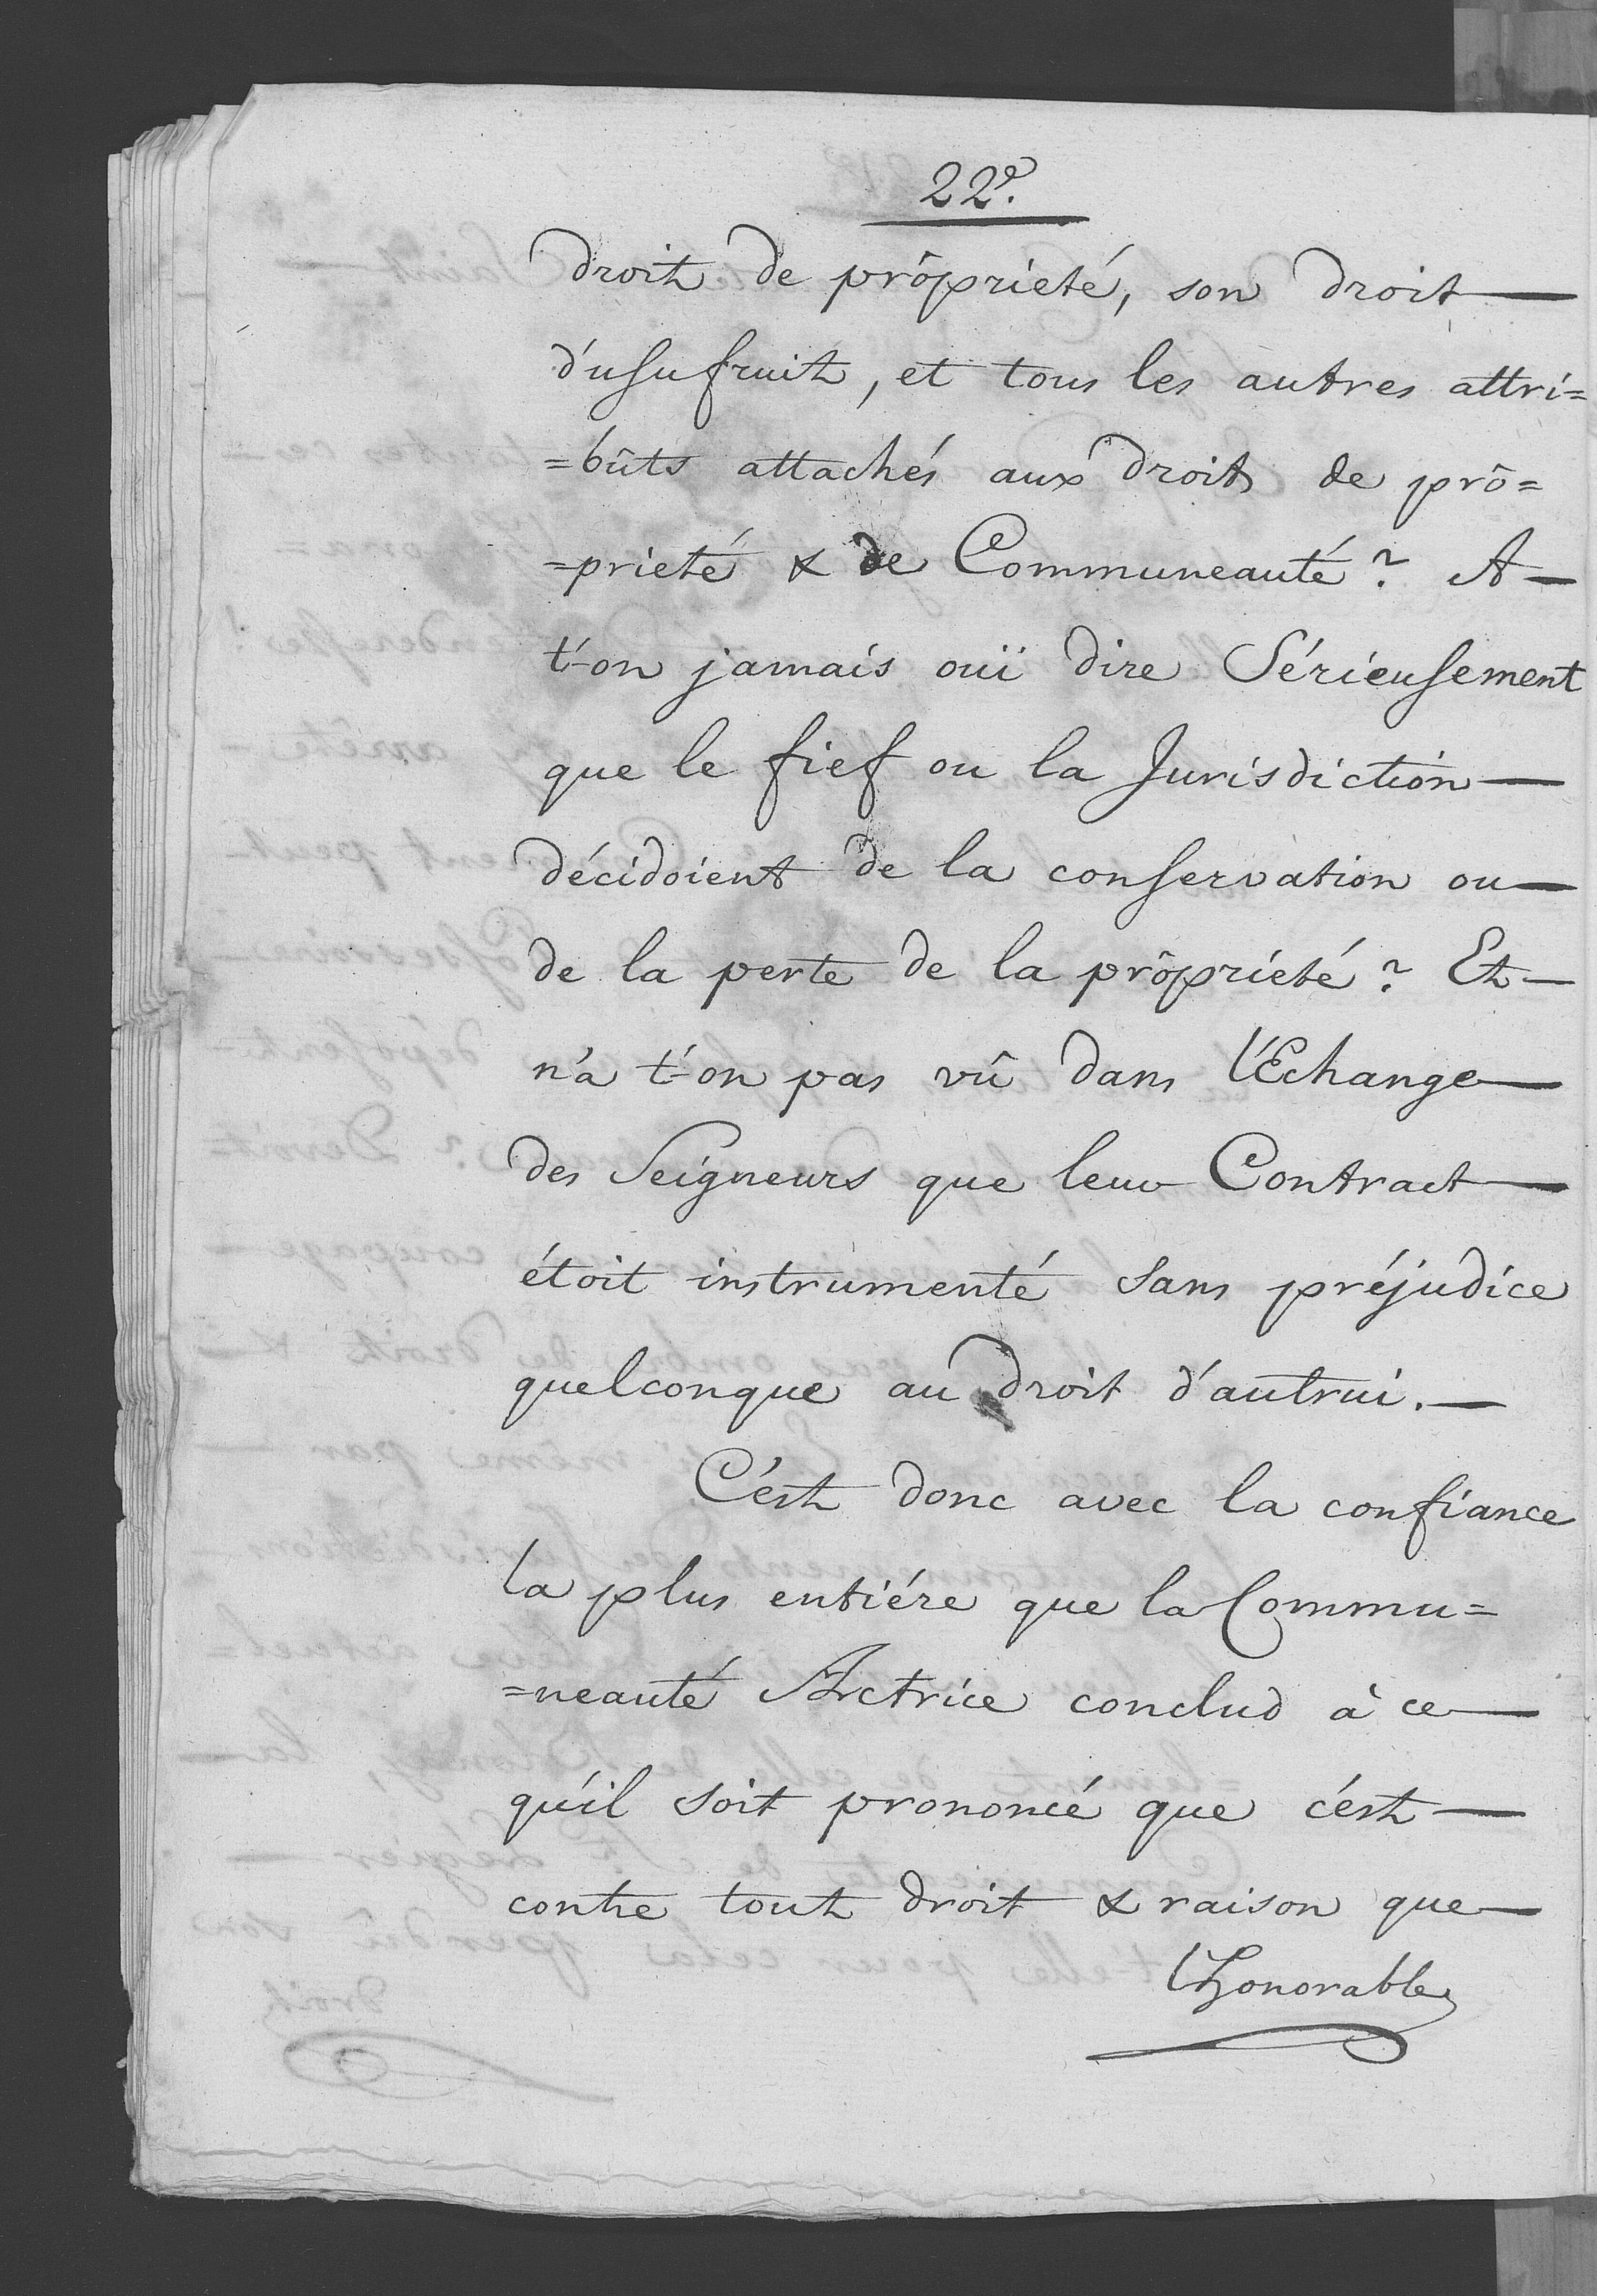 22e.
droit de prôprieté, son droit —
d'usufruit, et tous les autres attri=
=bûts attachés aux droits de prô=
=prieté & de Communeauté? A —
t'-on jamais ouï dire Sérieusement
que le fief ou la Jurisdiction —
décidoient de la conservation ou —
de la perte de la prôprieté? Et —
n'a t'-on pas vû dans l'Echange —
des Seigneurs que leur Contract —
étoit instrumenté sans préjudice
quelconque au droit d'autrui. —
C'est donc avec la confiance
la plus entiére que la Commu=
=neauté Actrice conclud à ce —
qu'il soit prononcé que c'est —
contre tout droit & raison que —
l'honorable